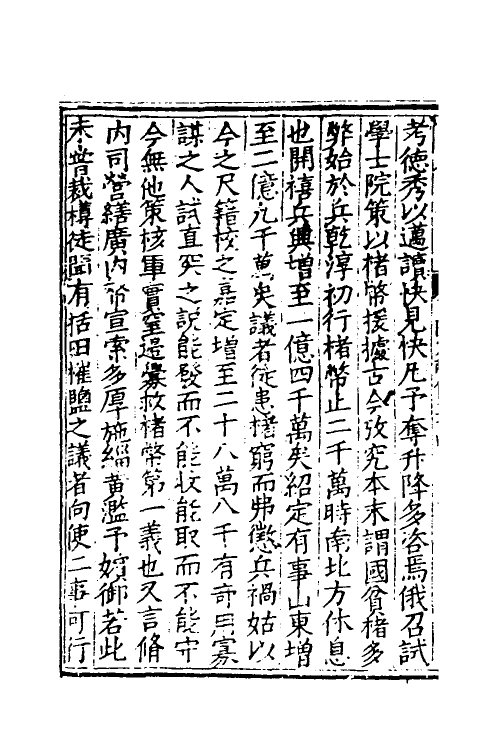 考德秀以邁讀快見快凡予奪升降多咨焉俄召試
學士院策以楮幣援據古今攷究本末謂國貧楮多
弊始於兵乾淳初行楮幣止二千萬時南北方休息
也開禧兵興增至一億四千萬矣紹定有事山東增
至二億九千萬矣議者徒患楮窮而弗懲兵禍姑以
今之尺籍校之嘉定增至二十八萬八千有奇用寡
謀之人試直突之說能發而不能收能取而不能守
今無他策核軍實窒邊釁救楮幣第一義也又言脩
內司營繕廣內帑宣索多厚施緇黃濫予嬪御若此
未嘗裁樽徒聞有括田榷鹽之議者向使二事可行